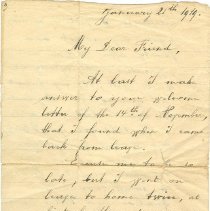 January 21th 1919.
My Dear Friend,
At last I make
answer to your welcome
letter of the 14th of November,
that I found when I came
back from leave.
Excuse me to be so
late, but I went on
leave to home town, at